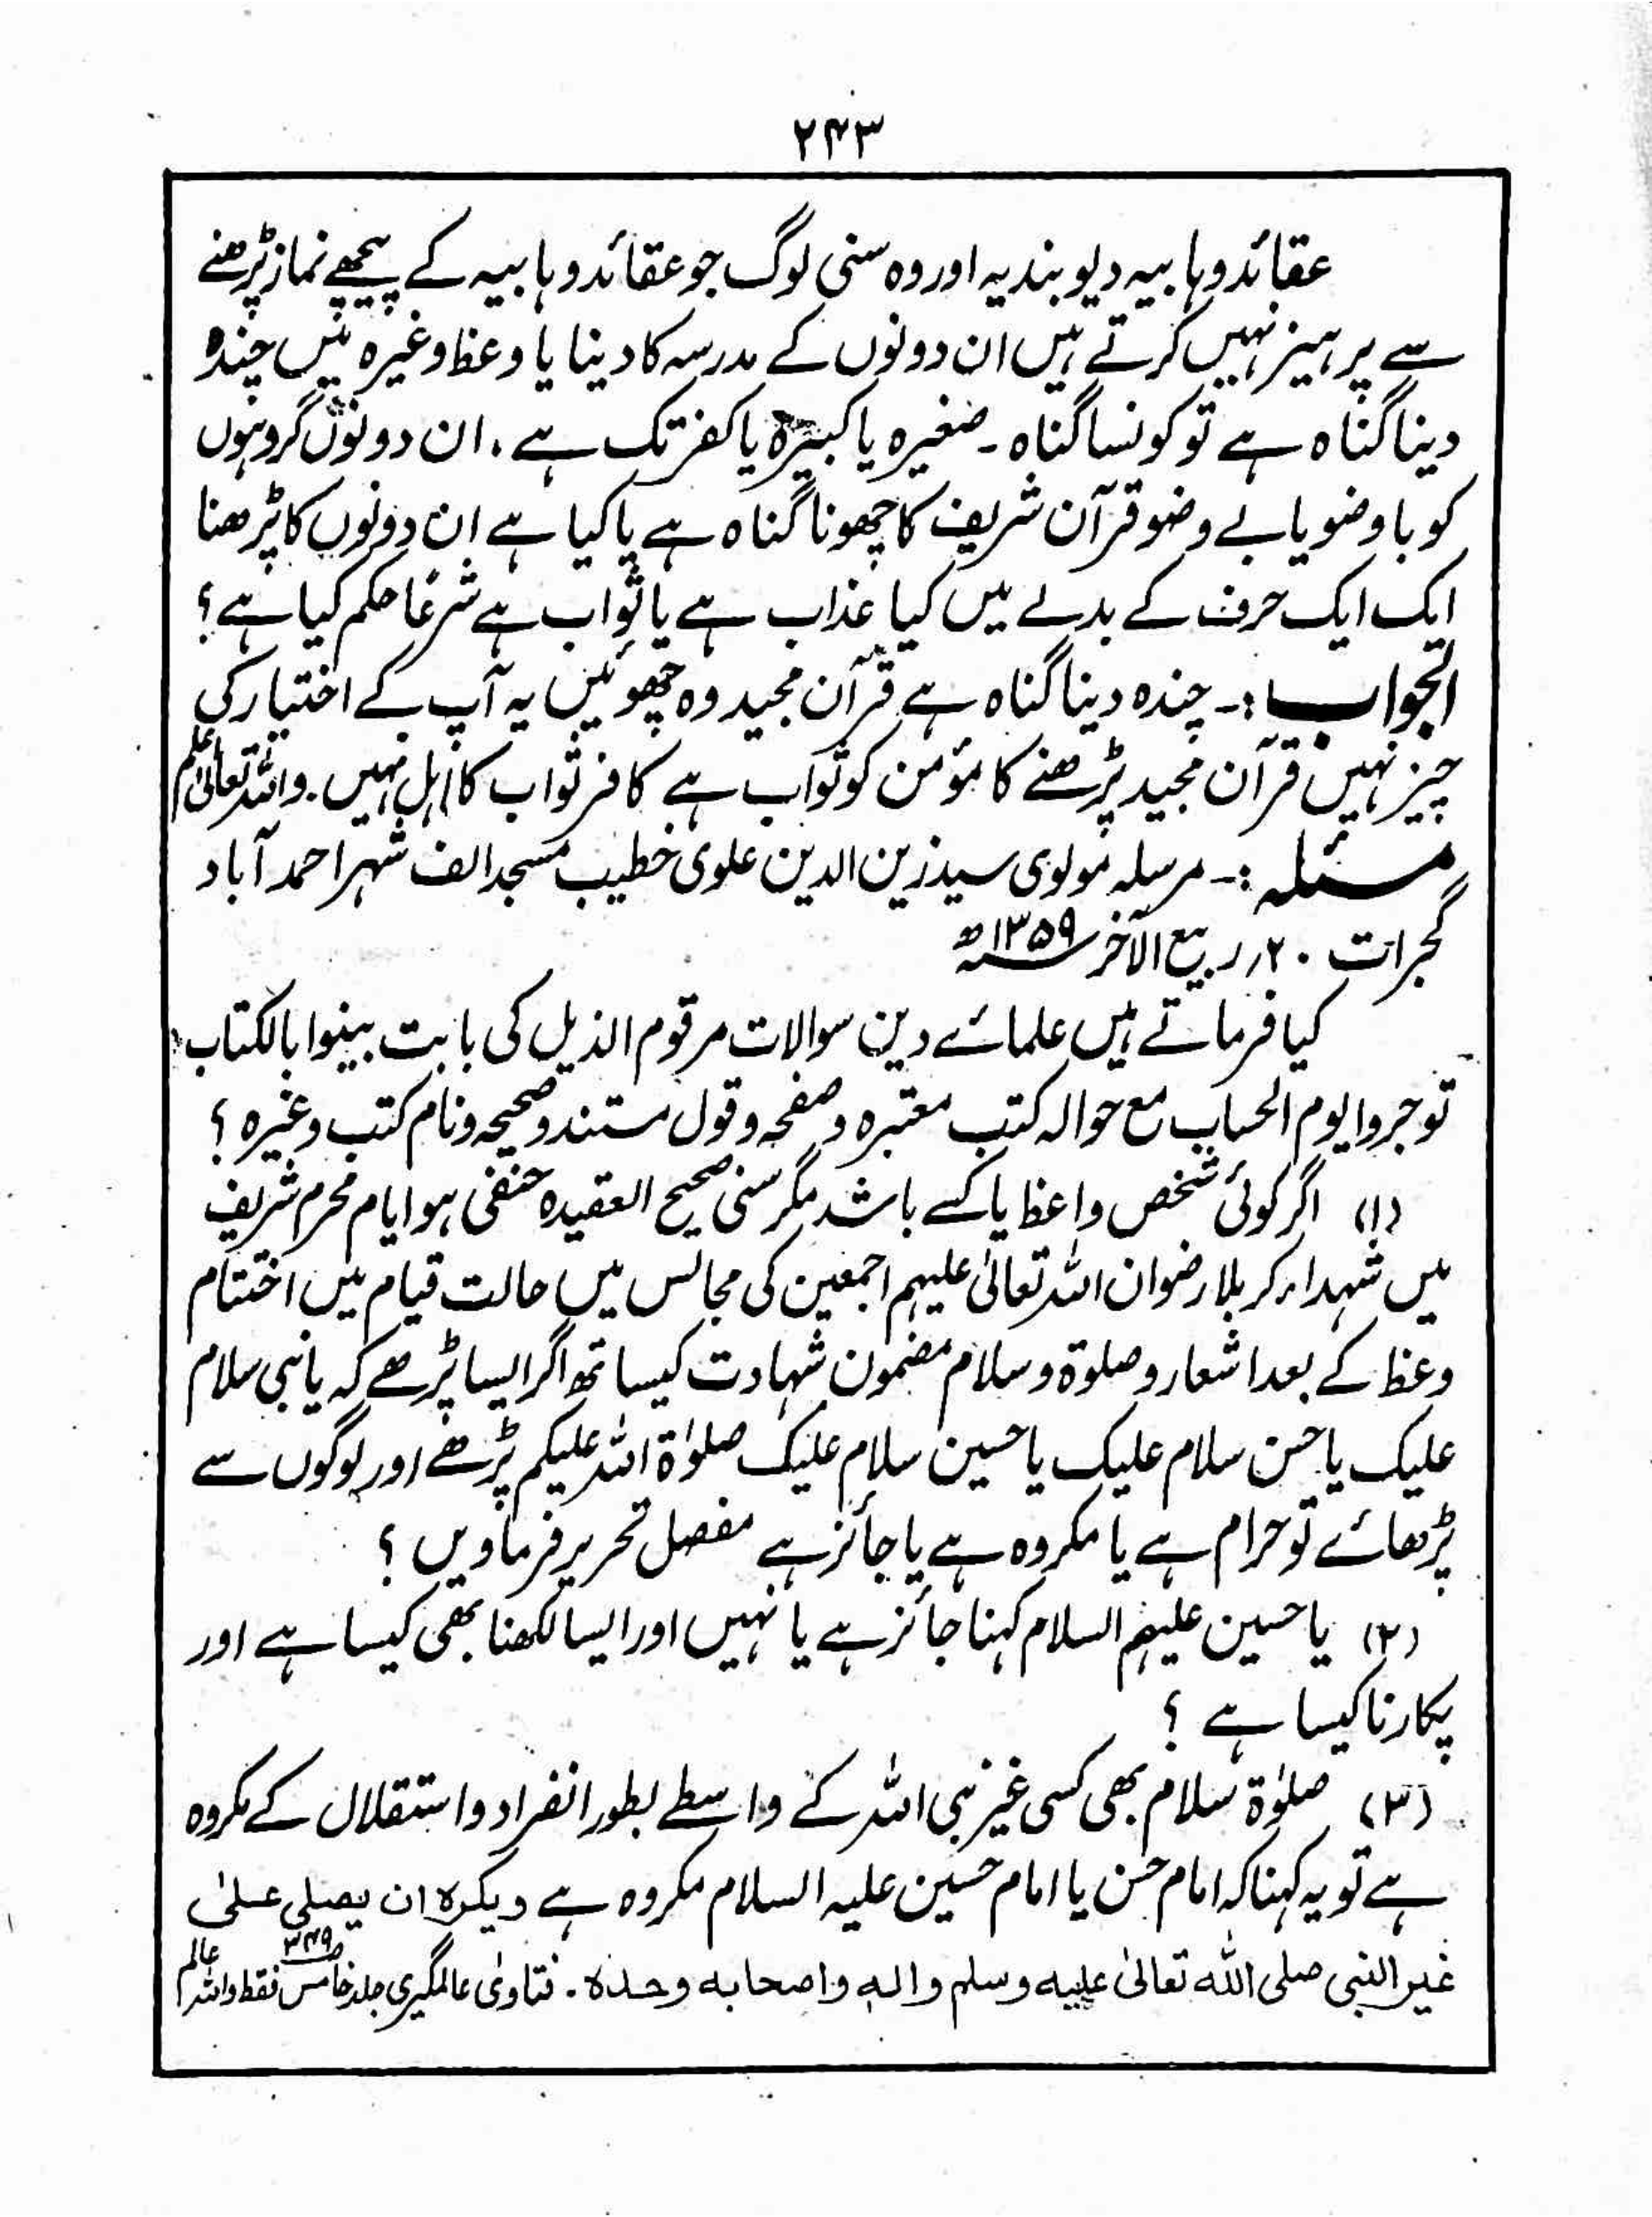 ۲۴۳
عقائد وہابیہ دیوبندیہ اور وہ سنی لوگ جو عقائد وہابیہ کے پیچھے نماز پڑھنے
سے پرہیز نہیں کرتے ہیں ان دونوں کے مدرسہ کا دینا یا وعظ وغیرہ میں چندہ
دینا گناہ ہے تو کونسا گناہ۔ صغیرہ یا کبیرہ یا کفر تک ہے، ان دونوں گروہوں
کو باوضو یا بے وضو قرآن شریف کا چھونا گناہ ہے یا کیا ہے ان دونوں کا پڑھنا
ایک ایک حرف کے بدلے میں کیا عذاب ہے یا ثواب ہے شرعًا حکم کیا ہے؟
الجواب :۔ چندہ دینا گناہ ہے قرآن مجید وہ چھوئیں یہ آپ کے اختیار کی
چیز نہیں قرآن مجید پڑھنے کا مؤمن کو ثواب ہے کافر ثواب کا اہل نہیں۔ واللہ تعالیٰ اعلم
مسئلہ :۔ مرسلہ مولوی سید زین الدین علوی خطیب مسجد الف شہر احمد آباد
گجرات ۲۰؍ ربیع الآخر ۱۳۵۹ھ
کیا فرماتے ہیں علمائے دین سوالات مرقوم الذیل کی بابت بینوا بالکتاب
توجروا یوم الحساب مع حوالہ کتب معتبرہ و صفحہ و قول مستند و صحیحہ و نام کتب وغیرہ؟
(۱) اگر کوئی شخص واعظ یا کسے باشد مگر سنی صحیح العقیدہ حنفی ہو ایام محرم شریف
میں شہداء کربلا رضوان اللہ تعالیٰ علیہم اجمعین کی مجالس میں حالت قیام میں اختتام
وعظ کے بعد اشعار و صلوۃ و سلام مضمون شہادت کیساتھ اگر ایسا پڑھے کہ یا نبی سلام
علیک یا حسن سلام علیک یا حسین سلام علیک صلوٰۃ اللہ علیکم پڑھے اور لوگوں سے
پڑھائے تو حرام ہے یا مکروہ ہے یا جائز ہے مفصل تحریر فرماویں؟
(۲) یا حسین علیہم السلام کہنا جائز ہے یا نہیں اور ایسا لکھنا بھی کیسا ہے اور
پکارنا کیسا ہے؟
(۳) صلوٰۃ سلام بھی کسی غیر نبی اللہ کے واسطے بطور انفراد و استقلال کے مکروہ
ہے تو یہ کہنا کہ امام حسن یا امام حسین علیہ السلام مکروہ ہے ویکرہ ان یصلی علیٰ
غیر النبی صلی اللہ تعالیٰ علیہ وسلم والہ واصحابہ وحدہ۔ فتاویٰ عالمگیری جلد خامس ص۳۴۹ فقط واللہ عالم